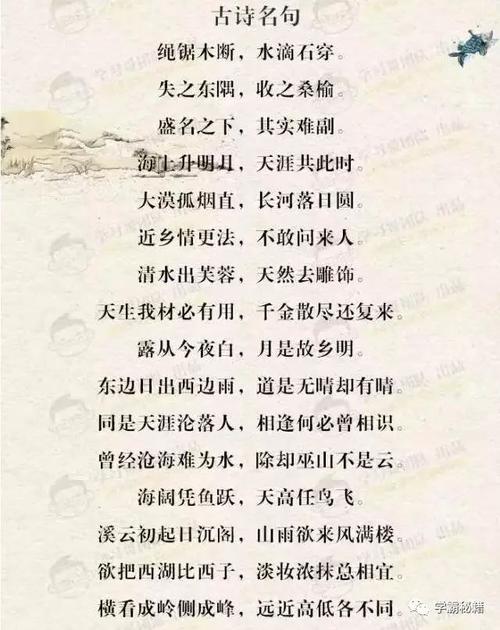 古诗名句
绳锯木断，水滴石穿。
失之东隅，收之桑榆。
盛名之下，其实难副。
海上升明月，天涯共此时。
大漠孤烟直，长河落日圆。
近乡情更法，不敢问来人。
清水出芙蓉，天然去雕饰。
天生我材必有用，千金散尽还复来。
露从今夜白，月是故乡明。
东边日出西边雨，道是无晴却有晴。
同是天涯沦落人，相逢何必曾相识。
曾经沧海难为水，除却巫山不是云。
海阔凭鱼跃，天高任鸟飞。
溪云初起日沉阁，山雨欲来风满楼。
欲把西湖比西子，淡妆浓抹总相宜。
横看成岭侧成峰，远近高低各不同。
学霸秘籍